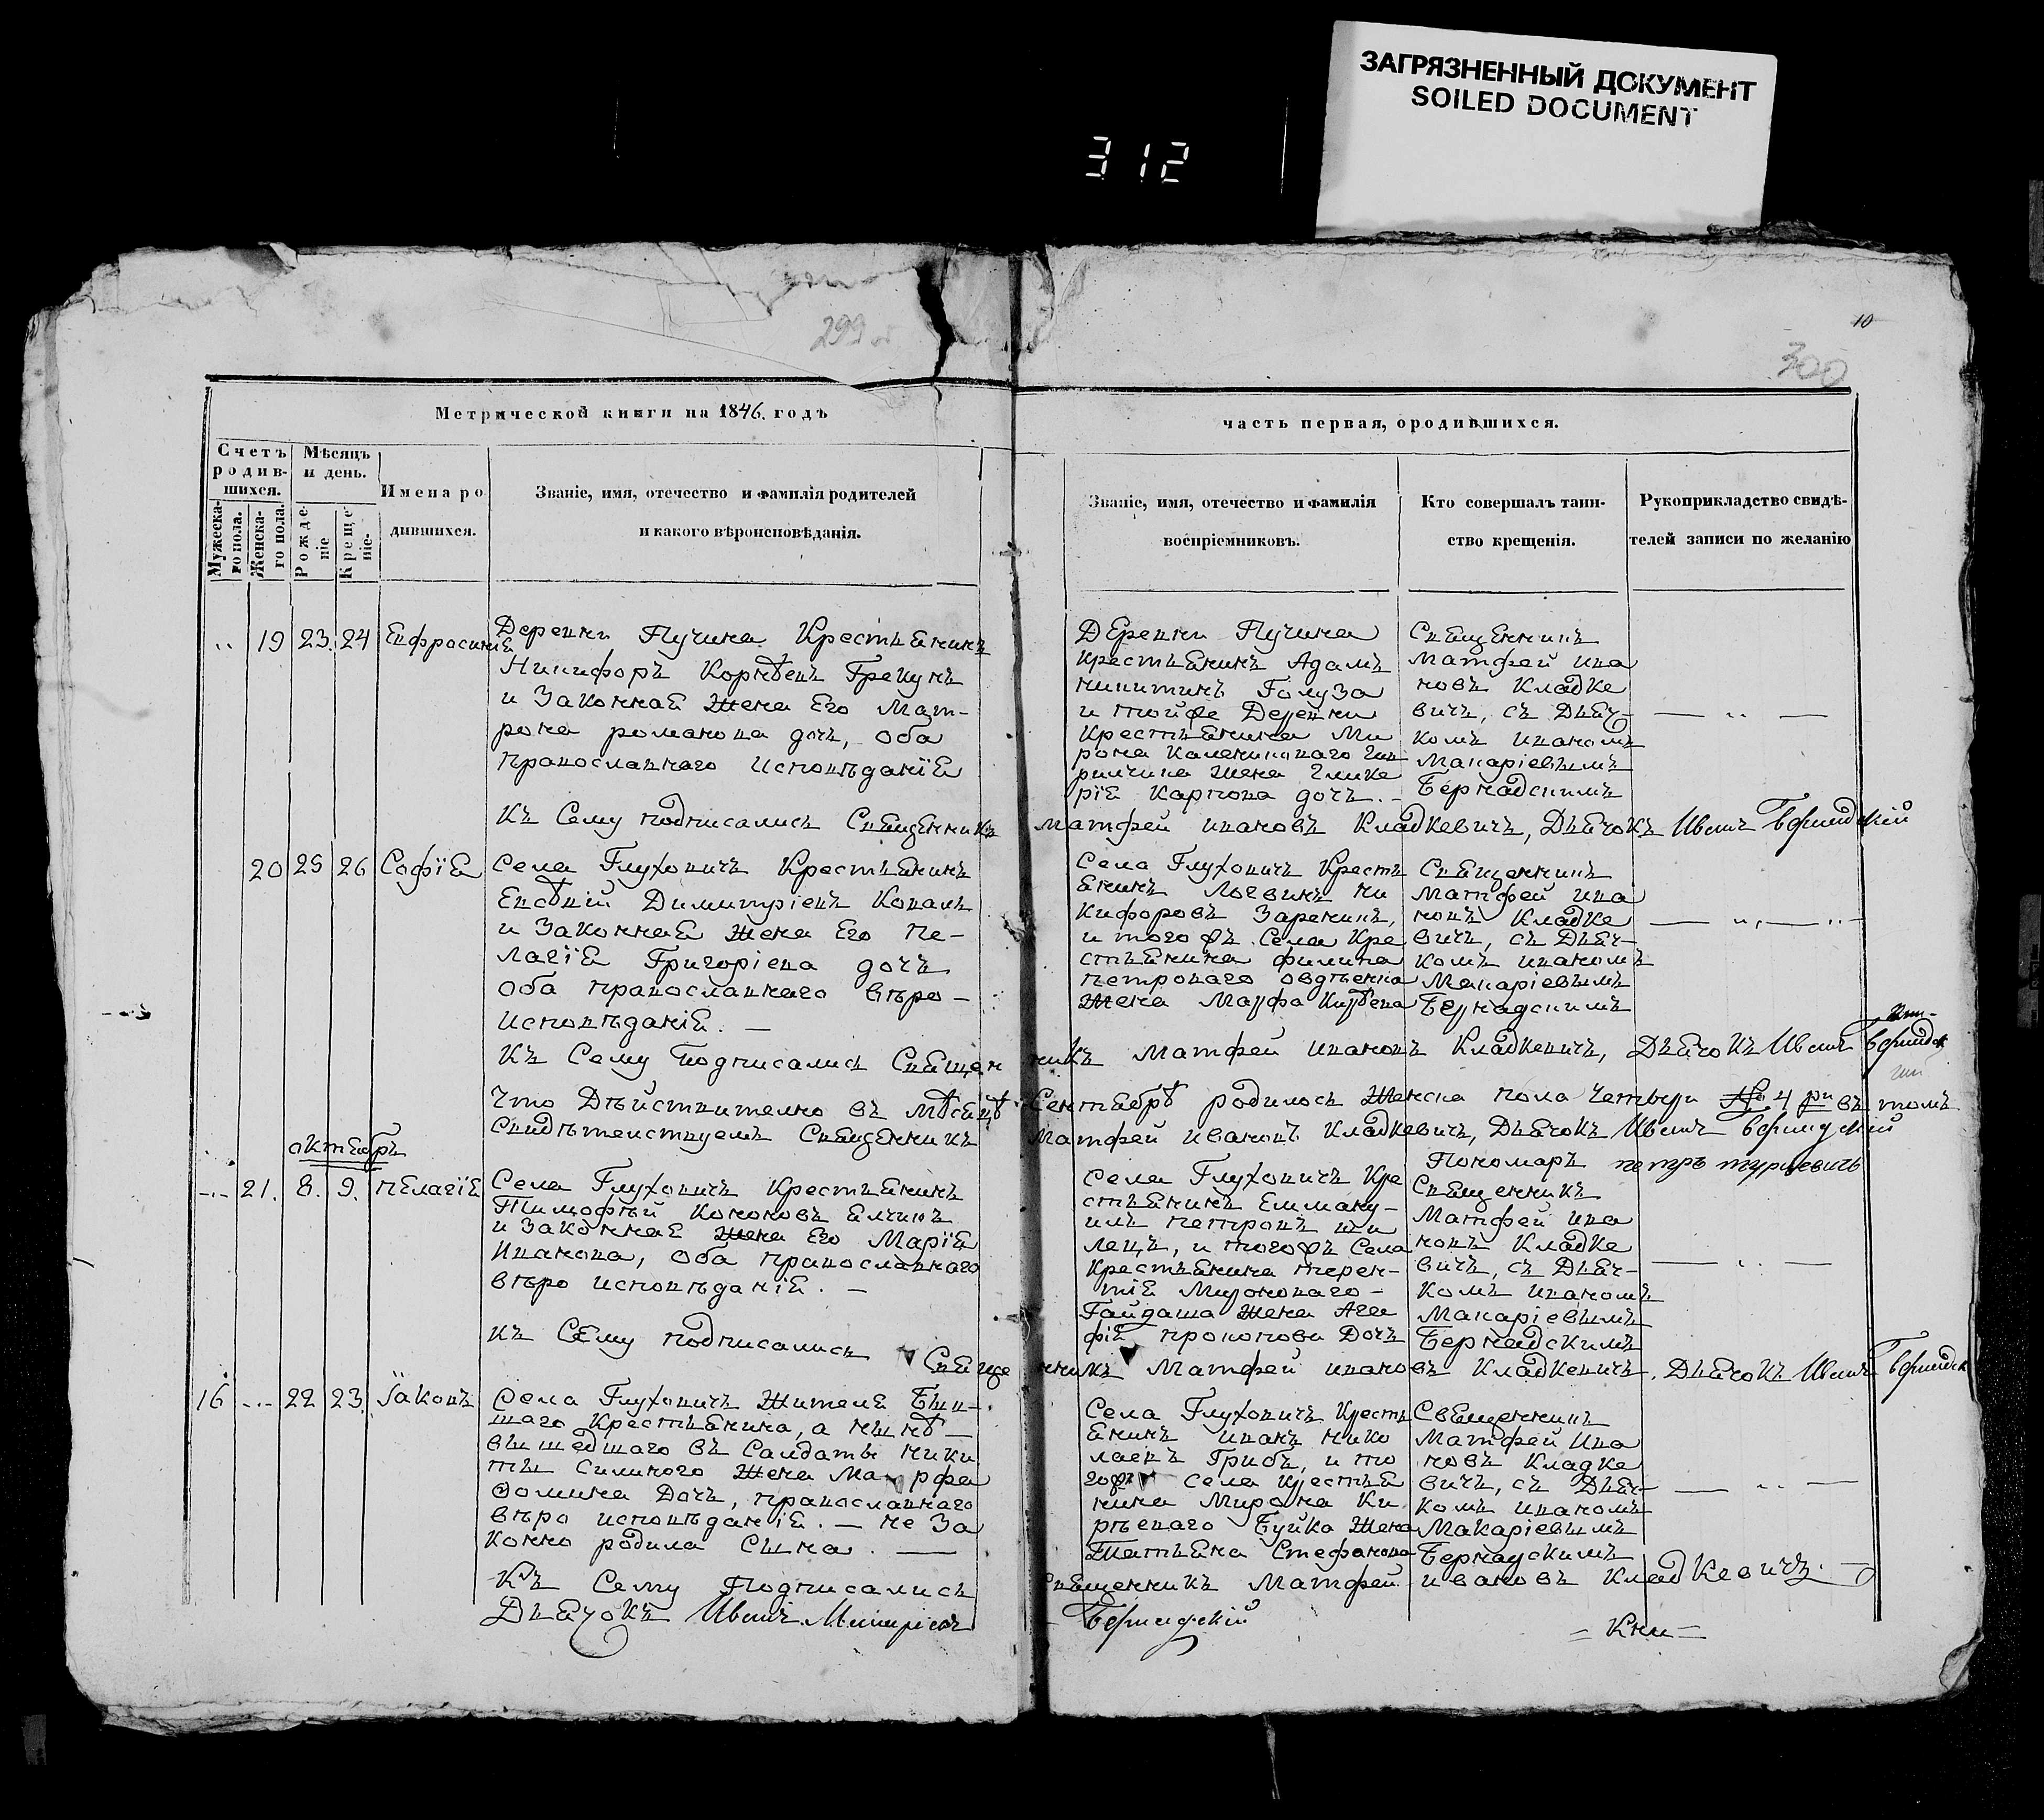 ЗАГРЯЗНЕННЫЙ ДОКУМЕНТ
SOILED DOCUMENT
312
10
299
300
Метрической книги на 1846. годъ
часть первая, ородившихся.
Счетъ родив-шихся.
Мѣсяцъ и день.
Мужеска-го пола.
Женска-го пола.
Рожде-ніе
Креще-ніе.
Имена ро
дившихся.
Званіе, имя, отечество и фамилія родителей
и какого вѣроисповѣданія.
Званіе, имя, отечество и фамилія
воспріемниковъ.
Кто совершалъ таин-
ство крещенія.
Рукоприкладство свидѣ-
телей записи по желанію
19 23. 24 Евфросинія
Деревни Пучина Крестьянинъ
Никифоръ Корнѣевъ Грекунъ
и Законная Жена Его Мат-
рона романова дочь, оба
православнаго исповѣданія
Деревни Пучина
крестьянинъ Адамъ
никитинъ Голуза
и тойже Деревни
Крестьянина Ми
рона
жена Глике
рія Карпова дочь. -
Священникъ
матфей ива
новъ Кладке
вичъ, съ Дьяч-
комъ иваномъ
Макаріевымъ
Бернадскимъ
Къ Сему подписались Священникъ матфей ивановъ Кладкевичъ, Дьячокъ Иванъ Бернадскій
20 25 26 Софія
Села Глуховичъ Крестьянинъ
Евсѣвій Димитріевъ Ковалъ
и Законная Жена Его Пе-
лагія Григоріева дочь
Оба православнаго вѣро-
исповѣданія. -
Села Глуховичъ Кресть
янинъ Логвинъ ни
кифоровъ Заренинъ,
и тогожъ Села Кре
стьянина филипа
петроваго
Жена Марфа
Священникъ
Матфей ива
новъ Кладке
вичъ, съ Дьяч-
комъ иваномъ
Макаріевымъ
Бернадскимъ
Къ Сему Подписались Священникъ Матфей ивановъ Кладкевичъ, Дьячокъ Иванъ
Что Дѣйствително въ мѣсяцѣ Сентябрѣ родилось Женска пола Четверы № 4 въ томъ
Свидѣтелствуемъ Священникъ Матфей Ивановъ Кладкевичъ, Дьячокъ Иванъ Бернадскій
Пономаръ петръ турцевичъ
октябръ
21. 8. 9. пелагія
Села Глуховичъ Крестьянинъ
Тимофѣй Кононовъ Елчинъ
и Законная Жена Его Марія
Иванова, Оба православнаго
вѣро исповѣданія. -
Села Глуховичъ Кре
стьянинъ Емману-
илъ петровъ ши
лецъ, и тогожъ Села
Крестьянина терен-
тія Мироноваго -
Гайдаша Жена Ага
фія прокопова Дочь
Священникъ
Матфей ива
новъ Кладке
вичъ, съ Дьяч-
комъ иваномъ
Макаріевымъ
Бернадскимъ
къ Сему подписались Священникъ Матфей ивановъ Кладкевичъ. Дьячокъ Иванъ
16 22 23. Іаковъ
Села Глуховичъ Жителя Быв-
шаго Крестьянина, а нынѣ -
вышедшаго въ Салдаты ники
ты Силиного Жена Марфа
Фомина Дочь, православнаго
вѣро исповѣданія. - не За
конно родила Сына. -
Села Глуховичъ Кресть
янинъ иванъ нико
лаевъ Грибъ, и то
гожъ села Крестья
нина Мирона Ки
рѣеваго Буйка Жена
Татьяна Стефанова
Священникъ
Матфей Ива
новъ Кладке
вичъ, съ Дьяч-
комъ иваномъ
Макаріевымъ
Бернадскимъ
Къ Сему Подписались Священникъ Матфей ивановъ Кладкевичъ.
Дьячокъ Иванъ Бернадскій
= Кни =